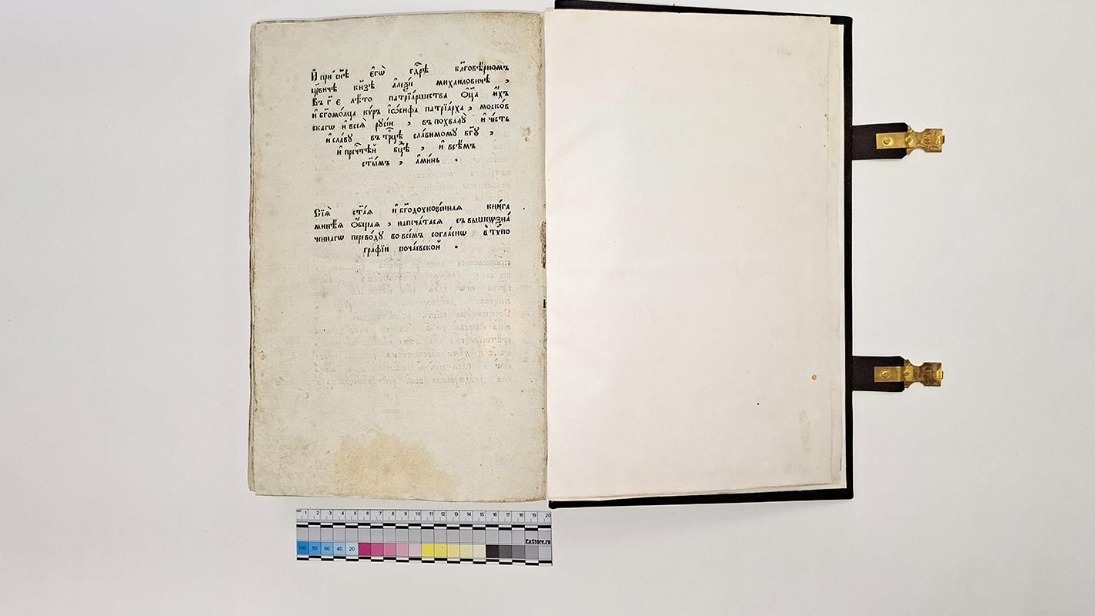 И҆ при сн҃ѣ є҆гѡ̀ гдⷭ҇рѣ бл҃говѣ́рномъ
цр҃виче кнѧ́зе а҆леѯі́и михаиловиче ,
Въ г҃ є лѣ́то патрїа́ршества ѻ҆ц҃а и҆́хъ
и҆ бг҃омо́лца кѵ́ръ і҆ѡ́сифа патрїа́рха , моско́в
скагѡ и҆ всеѧ̀ рꙋсі́и , въ похвалꙋ̀ и҆ че́сть
и҆ сла́вꙋ въ трⷪ҇цѣ сла́вимомꙋ бг҃ꙋ ,
и҆ пречⷭ҇тѣй бц҃е , и҆ всѣ́мъ
ст҃ы́мъ , а҆ми́нь .
Сїѧ̀ ст҃а́ѧ и҆ бг҃одꙋхнове́ннаѧ кни́га
мине́ѧ ѻ҆́бщаѧ , напеча́тасѧ съ вышеѡзна́
ченнагѡ перево́дꙋ во всѣ́мъ согла́снѡ в тѵпо
гра́фїи поча́евской .
1 2 3 4 5 6 7 8 9 10 11 12 13 14 15 16 17 18 19 20
100 80 60 40 20